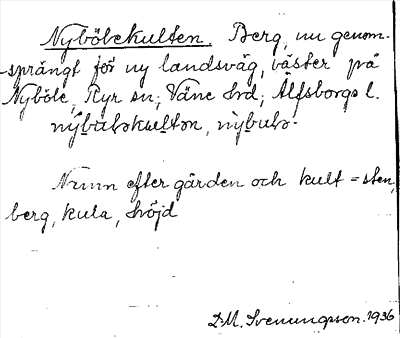 Nybölekulten. Berg, nu genom-
sprängt för ny landsväg, väster på
Nyböle, Ryr sn, Väne hrd, Älfsborgs l.
Namn efter gården och kult = sten,
berg, kula, höjd
D.M. Svenungson. 1936